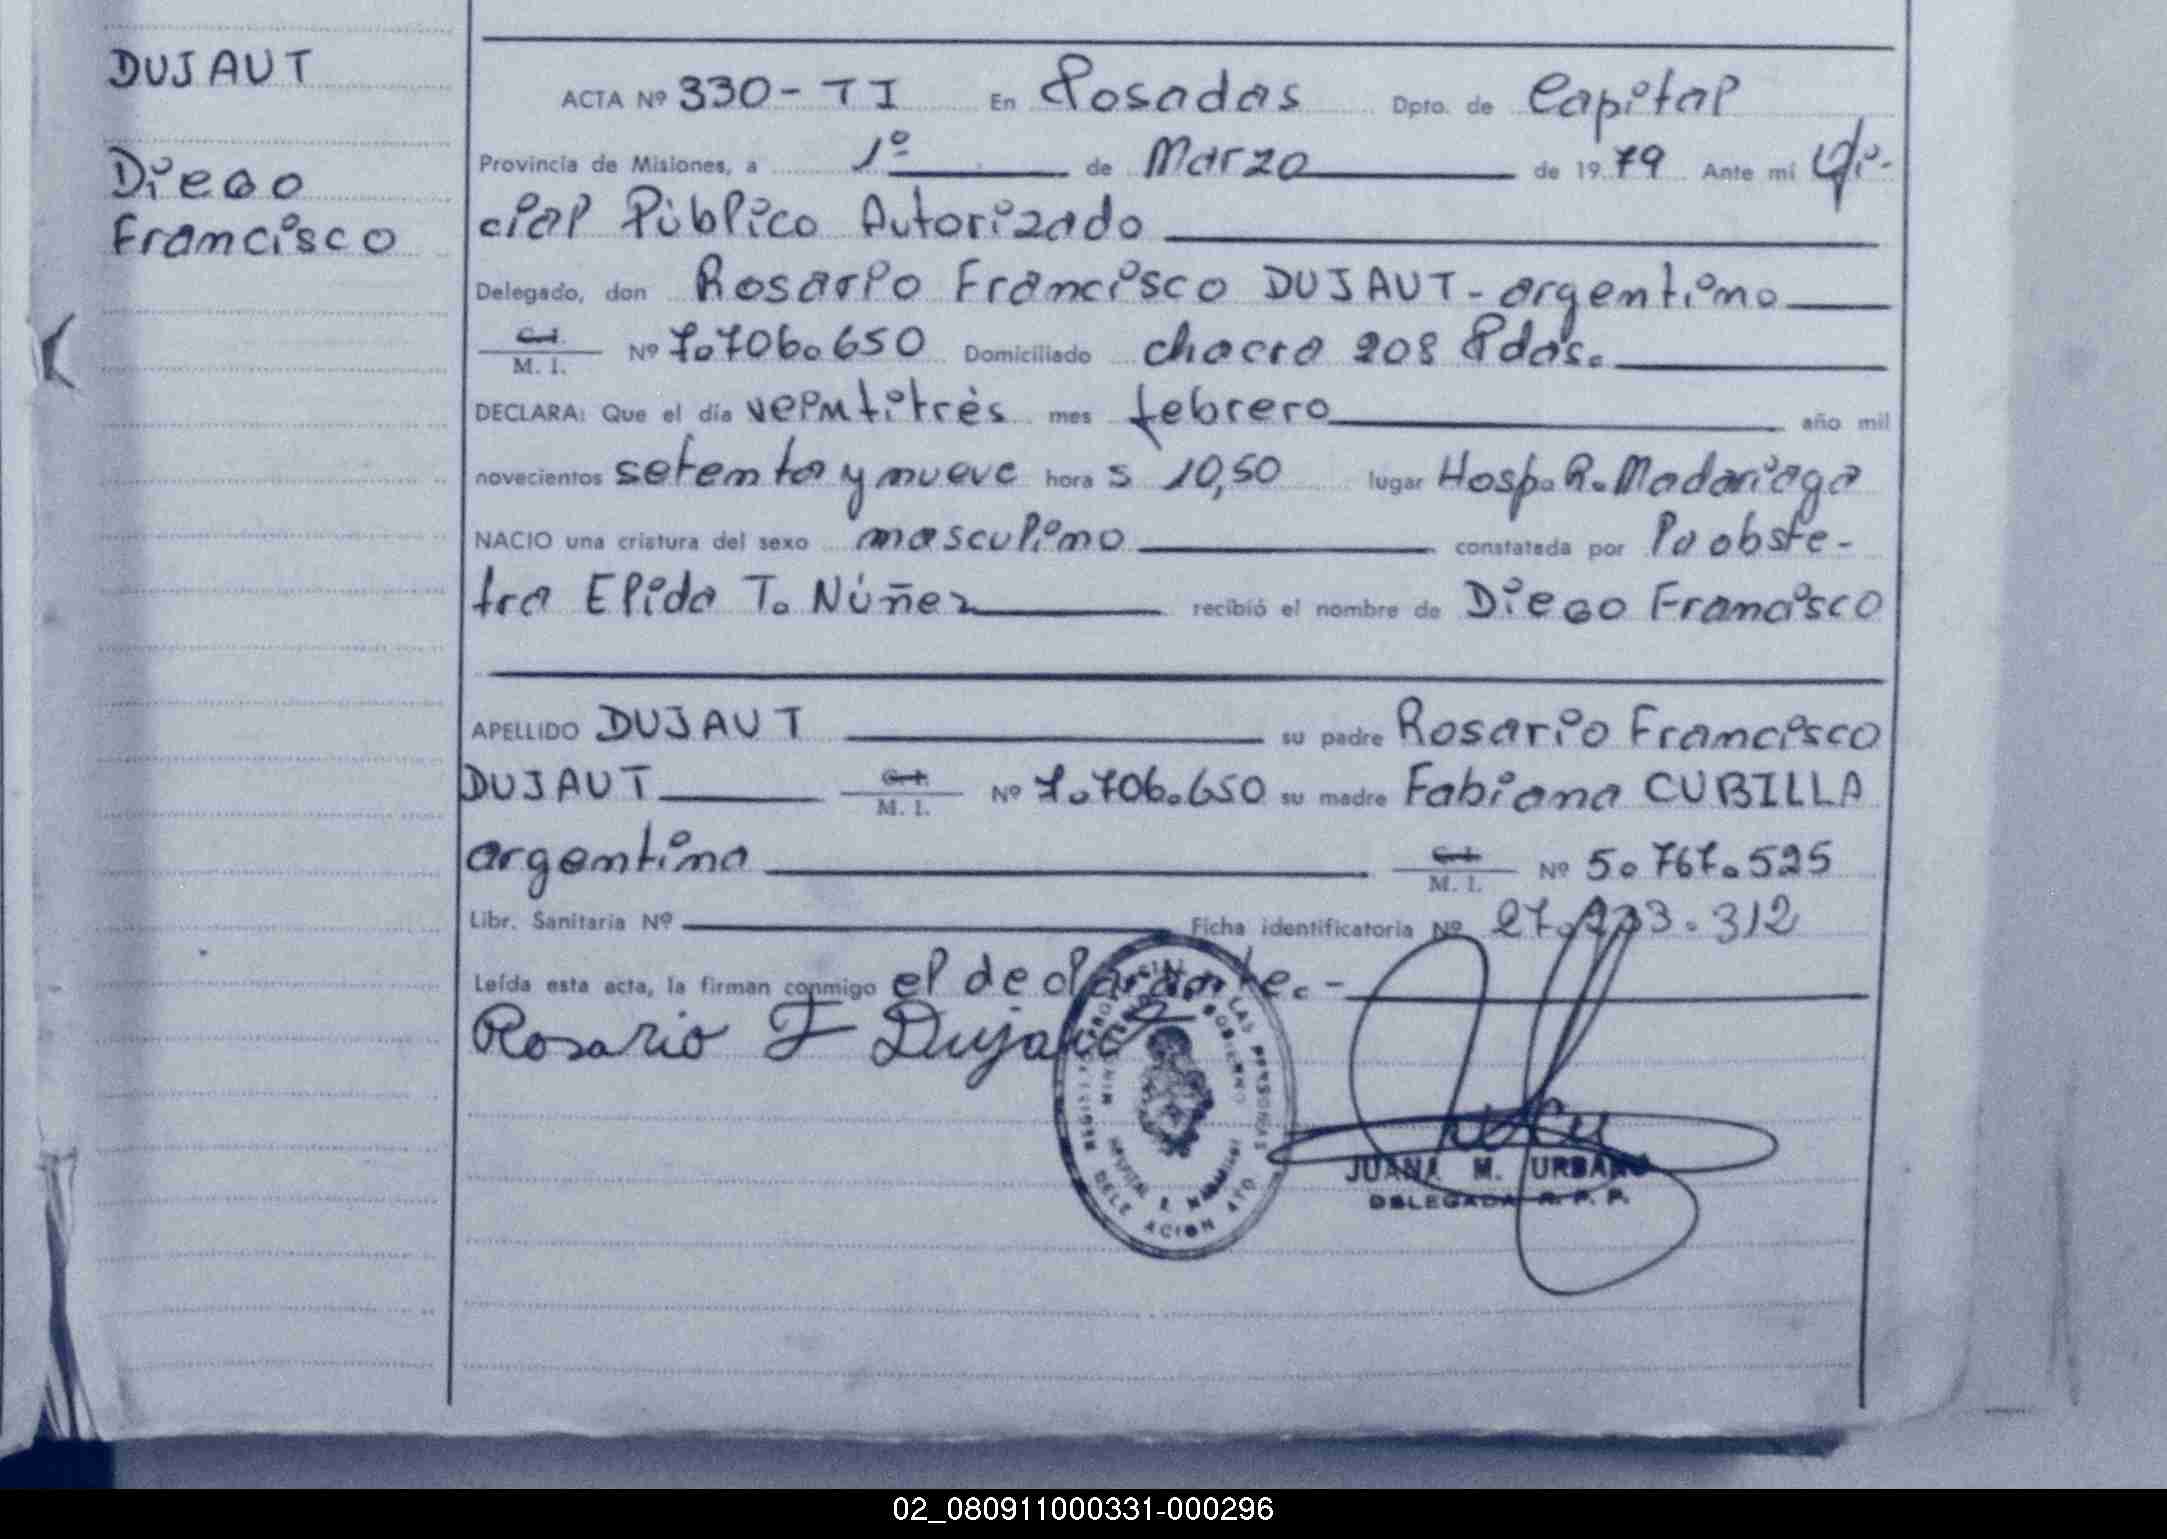 DUJAUT
Diego
Francisco
ACTA Nº 330-TI En Posadas Dpto. de Capital
Provincia de Misiones, a 1º de Marzo de 1979 Ante mí Ofi-
cial Público Autorizado
Delegado, don Rosario Francisco DUJAUT-argentino
C.I.
M. I. Nº 7.706.650 Domiciliado chacra 208 Pdas.
DECLARA: Que el día veintitrés mes febrero año mil
novecientos setenta y nueve hora s 10,50 lugar Hosp. R. Madariaga
NACIO una criatura del sexo masculino constatada por la obste-
tra Elida T. Núñez recibió el nombre de Diego Francisco
APELLIDO DUJAUT su padre Rosario Francisco
DUJAUT C.I. M. I. Nº 7.706.650 su madre Fabiana CUBILLA
argentina C.I. M. I. Nº 5.767.525
Libr. Sanitaria Nº Ficha identificatoria Nº 312
Leída esta acta, la firman conmigo el declarante.-
Rosario F Dujaut
JUANA M. URBANO
DELEGADA R. P. P.
02_080911000331-000296